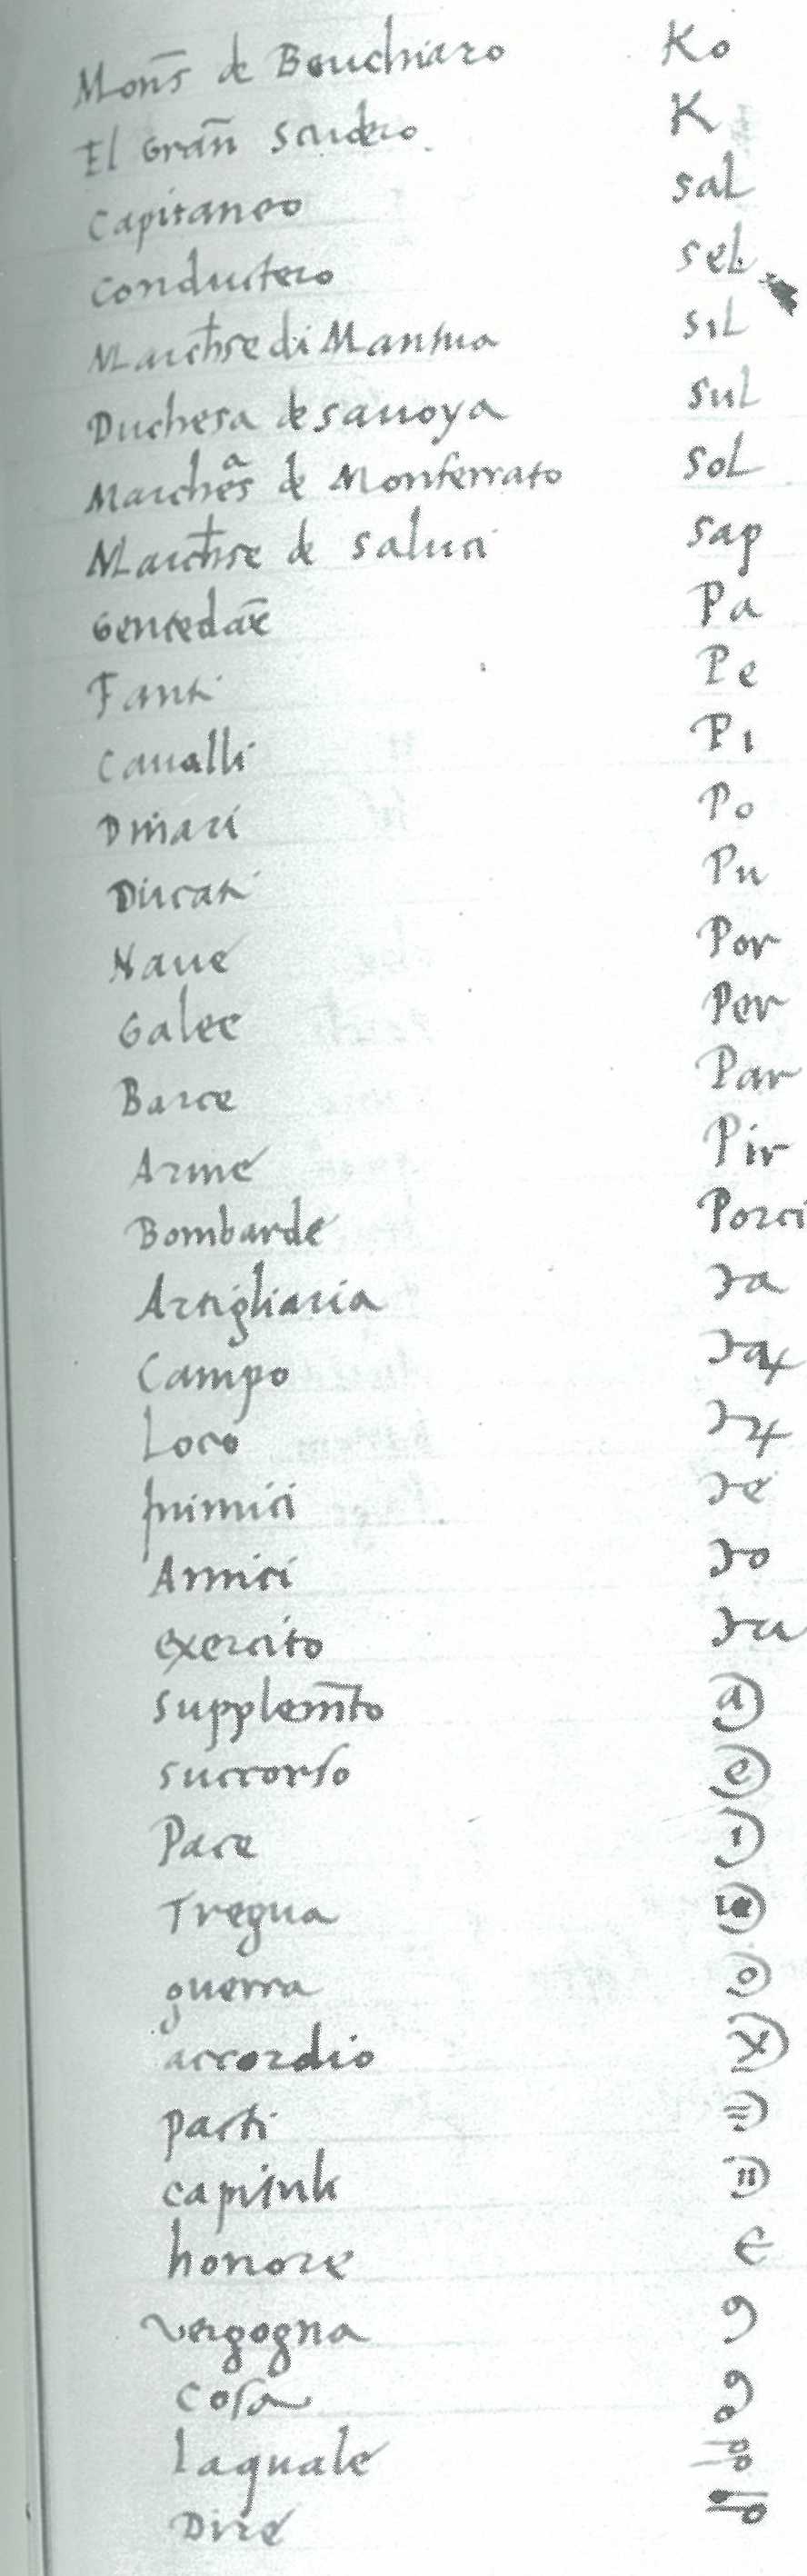 Mons̄ de Bouchiaro Ko
El Gran̄ Scudero K
Capitaneo sal
Conductero sel
Marchse di Mantua sil
Duchesa de savoya sul
Marchesa de Monferrato sol
Marchse de saluci sap
Gentedar̄e Pa
Fanti Pe
Cavalli Pi
Dinari Po
Ducati Pu
Nave Por
Galee Per
Barce Par
Arme Pir
Bombarde Porci
Artigliaria
Campo
Loco
Inimici
Amici
exercito
supplem̄to a
succorso e
Pace ı
Tregua
guerra o
accordio x
parti =
capituli "
honore €
vergogna 9
Cosa
laquale
Dire